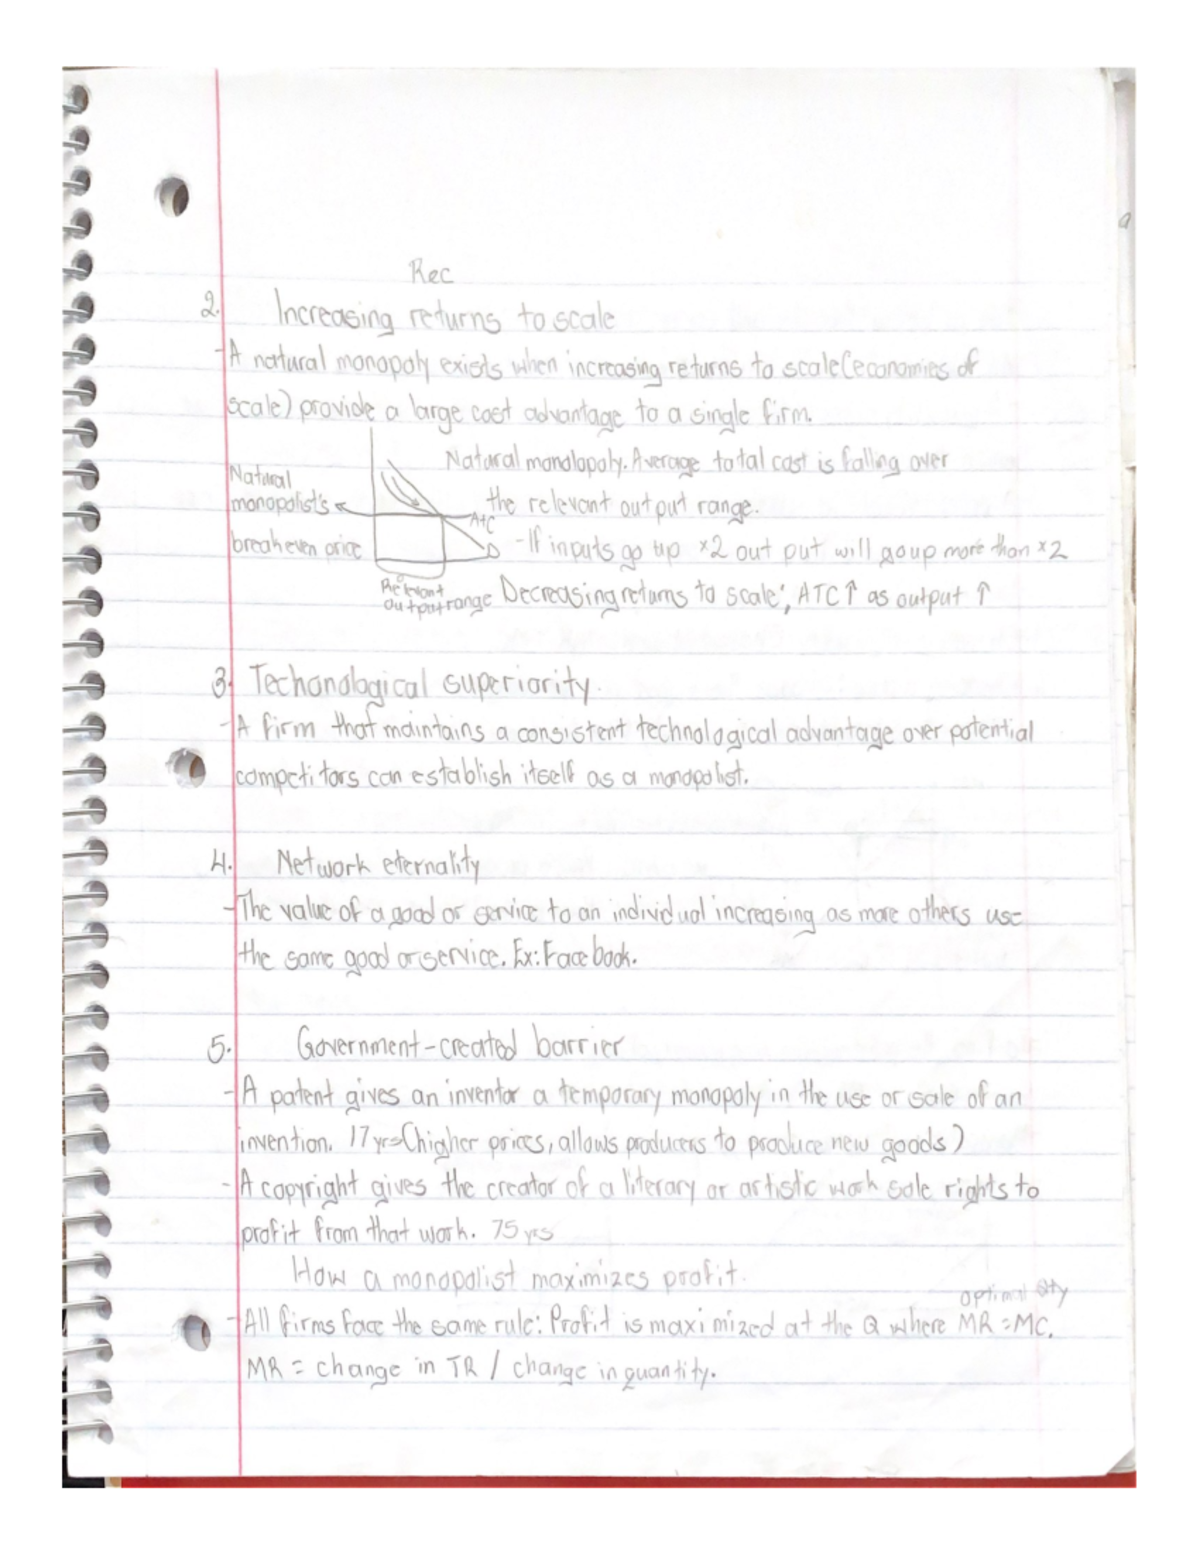 Rec
2. Increasing returns to scale
-A natural monopoly exists when increasing returns to scale (economies of
scale) provide a large cost advantage to a single firm.
Natural monolopoly. Average total cost is falling over
the relevant output range.
Natural
monopolist's
breakeven price
ATC
D
-If inputs go up x2 out put will go up more than x2
Relevant
output range
Decreasing returns to scale; ATC↑ as output ↑
3. Techonological superiority.
-A firm that maintains a consistent technological advantage over potential
competitors can establish itself as a monopolist.
4. Network eternality
-The value of a good or service to an individual increasing as more others use
the same good or service. Ex: Facebook.
5. Government-created barrier
-A patent gives an inventor a temporary monopoly in the use or sale of an
invention. 17 yrs (higher prices, allows producers to produce new goods)
-A copyright gives the creator of a literary or artistic work sole rights to
profit from that work. 75 yrs
How a monopolist maximizes profit.
optimal qty
-All firms face the same rule: Profit is maximized at the Q where MR=MC.
MR = change in TR / change in quantity.